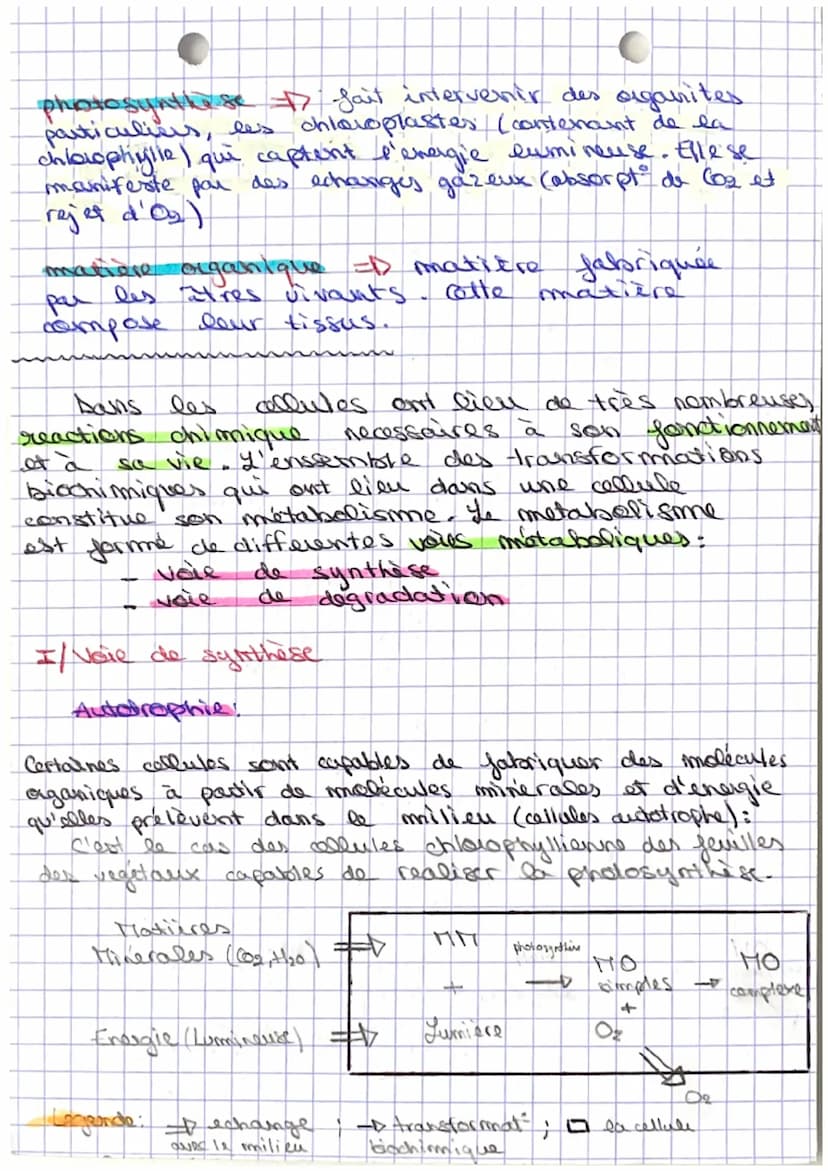 photosynthèse => fait intervenir des organites
particuliers, les chloroplastes (contenant de la
chlorophylle) qui captent l'energie lumineuse. Elle se
manifeste par des echanges gazeux (absorpt° de CO2 et
rejet d'O2)
matière organique => matière fabriquée
par les êtres vivants. Cette matière
compose leur tissus.
Dans les cellules ont lieu de très nombreuses
reactions chimique necessaires à son fonctionnement
et à sa vie. L'ensemble des transformations
biochimiques qui ont lieu dans une cellule
constitue son métabolisme. Le metabolisme
est formé de differentes voies métaboliques:
- voie de synthèse
- voie de dégradation
I/ Voie de synthèse
Autotrophie:
Certaines cellules sont capables de fabriquer des molécules
organiques à partir de molécules minérales et d'energie
qu'elles prélèvent dans le milieu (cellules autotrophe):
C'est le cas des cellules chlorophyllienne des feuilles
des vegétaux capables de realiser la photosynthèse.
Matières
Minérales (CO2, H2O) => MM photosynthèse -> MO simples -> MO complexe
+ +
Energie (Lumineuse) => Lumière O2
O2
Legende: => echange ; -> transformat° ; □ la cellule
avec le milieu biochimique